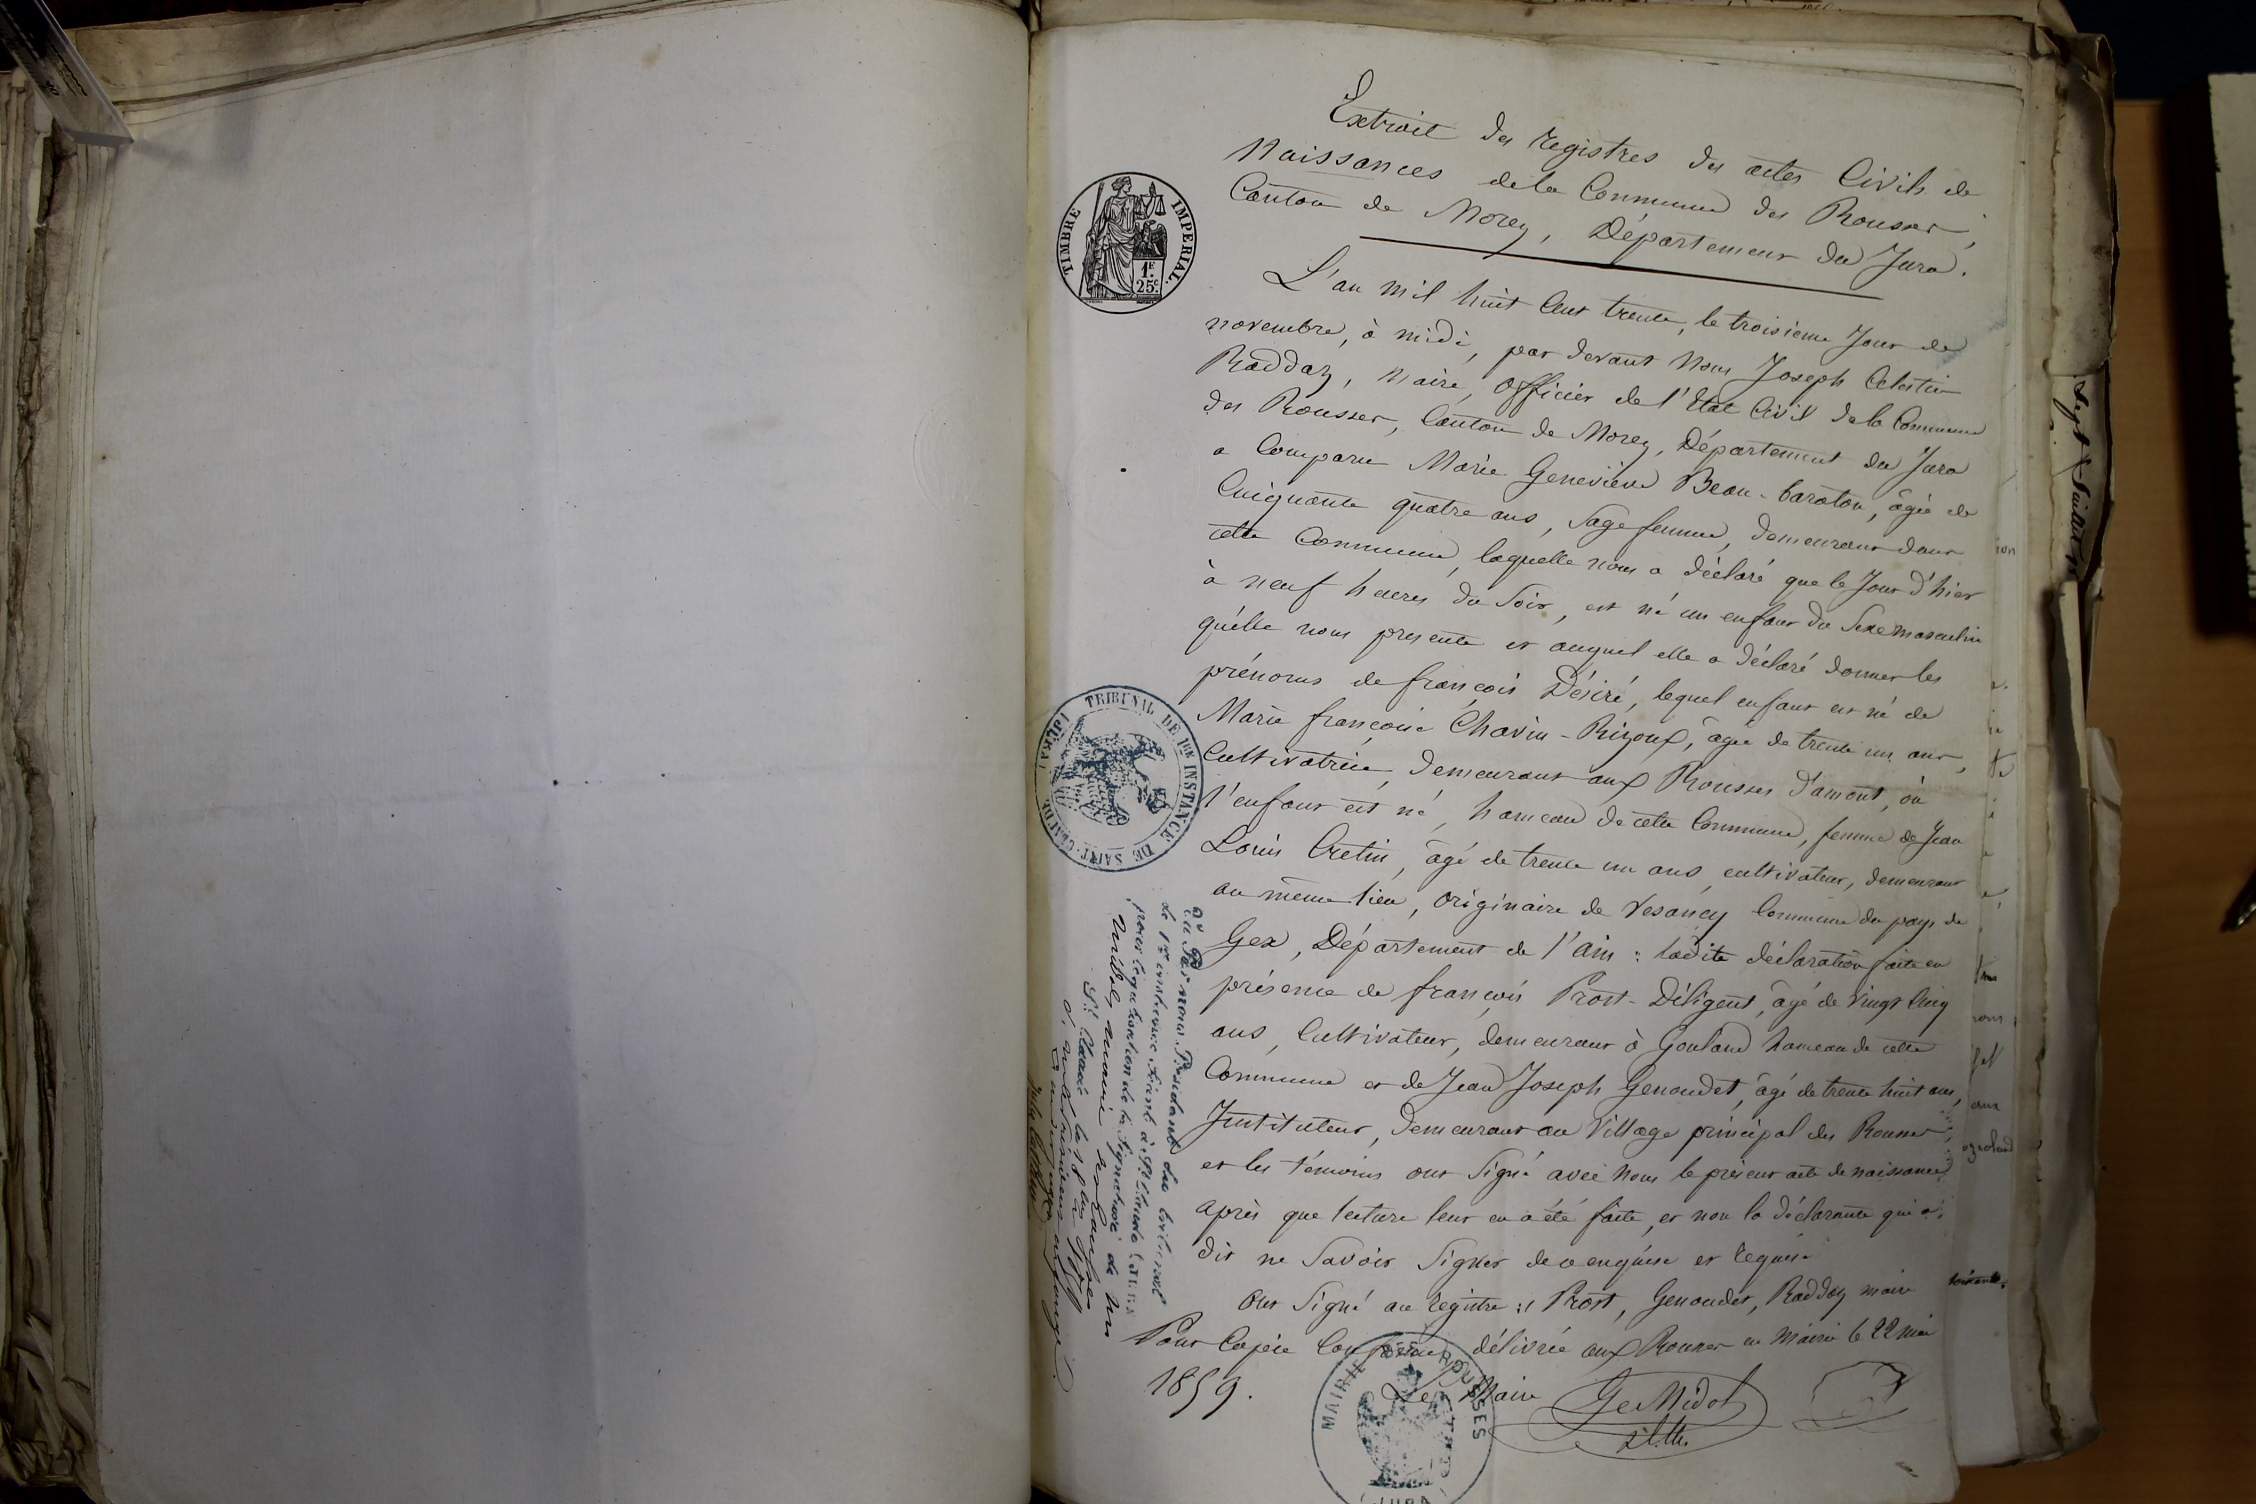 Extrait des registres des actes Civils de
Naissances de la Commune des Rousses,
Canton de Morez, Département du Jura.
TIMBRE IMPERIAL.
1F.
25c.
L'an mil huit Cent trente, le troisieme Jour de
novembre, à midi, par devant Nous Joseph Célestin
Raddaz, Maire, Officier de l'Etat Civil de la Commune
des Rousses, Canton de Morez, Département du Jura
a Comparu Marie Geneviève Beau-baraton, âgée de
Cinquante quatre ans, Sage femme, demeurant dans
cette Commune, laquelle nous a déclaré que le Jour d'hier
à neuf heures du Soir, est né un enfant du Sexe masculin
qu'elle nous présente et auquel elle a déclaré donner les
prénoms de françois Désiré, lequel enfant est né de
Marie françoise Chavin-Rizoux, âgée de trente un ans,
Cultivatrice, demeurant aux Rousses d'amont, où
l'enfant est né, hameau de cette Commune, femme de Jean
Louis Cretin, âgé de trente un ans, cultivateur, demeurant
au même lieu, originaire de Vesancy Commune du pays de
Gex, Département de l'ain : ladite déclaration faite en
présence de françois Prost-Diligent, âgé de vingt cinq
ans, Cultivateur, demeurant à Gouland hameau de cette
Commune et de Jean Joseph Genoudet, âgé de trente huit ans,
Instituteur, demeurant au Village principal des Rousses,
et les témoins ont Signé avec Nous le présent acte de naissance
après que lecture leur en a été faite, et non la déclarante qui a
dit ne Savoir Signer de ce enquise et requise
Ont Signé au registre : Prost, Genoudet, Raddaz maire
Pour Copie Conforme délivrée aux Rousses en Mairie le 22 mai
1859.
Le Maire
MAIRIE DES ROUSSES
(JURA)
TRIBUNAL DE 1RE INSTANCE DE SAINT-CLAUDE (JURA)
Vu Par nous Président du tribunal
de 1re instance séant à St Claude (JURA)
pour légalisation de la Signature de Mr
maire
St Claude le 18
Sept Juillet